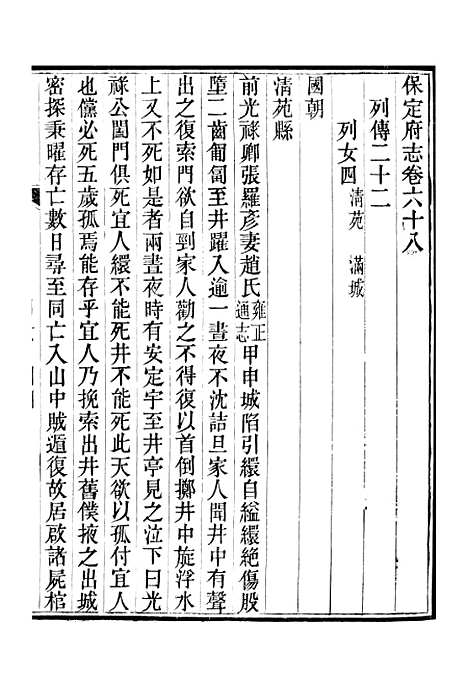 保定府志卷六十八
列傳二十二
列女四 清苑 滿城
國朝
清苑縣
前光祿卿張羅彥妻趙氏雍正通志甲申城陷引繯自縊繯絕傷股
墮二齒匍匐至井躍入逾一晝夜不沈詰旦家人聞井中有聲
出之復索門欲自剄家人勸之不得復以首倒擲井中旋浮水
上又不死如是者兩晝夜時有安定宇至井亭見之泣下曰光
祿公閨門俱死宜人繯不能死井不能死此天欲以孤付宜人
也儻必死五歲孤焉能存乎宜人乃挽索出井舊僕掖之出城
密探秉曜存亡數日尋至同亡入山中賊遁復故居啟諸屍棺